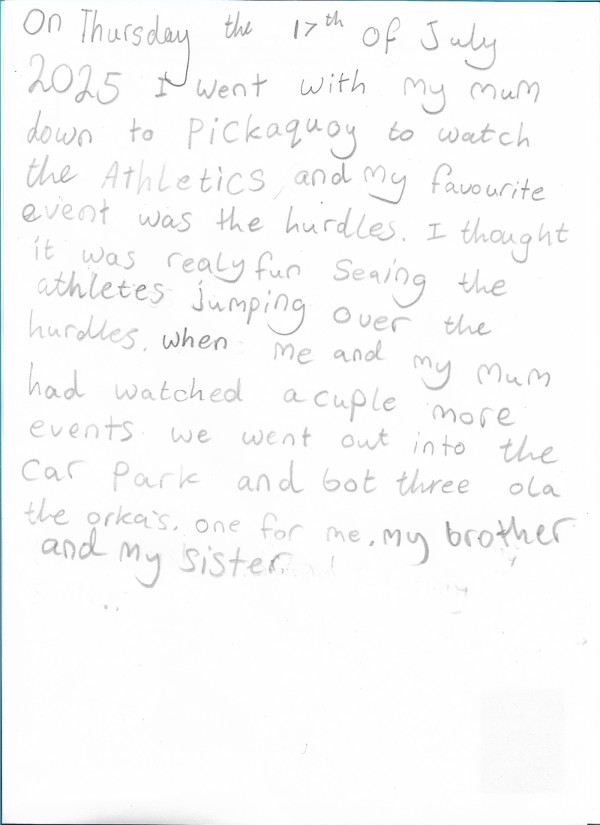 On Thursday the 17th of July
2025 I went with my mum
down to Pickaquoy to watch
the Athletics, and my favourite
event was the hurdles. I thought
it was realy fun Seaing the
athletes jumping over the
hurdles. when me and my mum
had watched a cuple more
events we went out into the
Car Park and bot three ola
the orka's. one for me, my brother
and my sister.